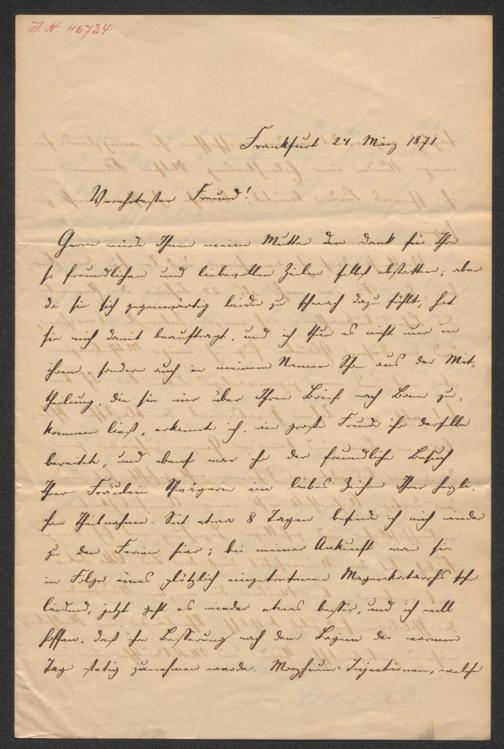 I.N. 46734
Frankfurt 24. März 1871
Verehrtester Freund!
Gern würde Ihnen meine Mutter den Dank für Ihre
so freundlichen und liebevollen Zeilen selbst abstatten; aber
da sie sich gegenwärtig leider zu schwach dazu fühlt, hat
sie mich damit beauftragt, und ich thue es nicht nur in
ihrem, sondern auch in meinem Namen. Schon aus der Mit-
theilung, die sie mir über Ihren Brief nach Bonn zu-
kommen ließ, erkannte ich, wie große Freude ihr derselbe
bereitete, und ebenso war ihr der freundliche Besuch
Ihrer Fräulein ein liebes Zeichen Ihrer herzli-
chen Theilnahme. Seit etwa 8 Tagen befinde ich mich wieder
zu den Ferien hier; bei meiner Ankunft war sie
in Folge eines plötzlich eingetretenen Magenkatarrhs sehr
leidend, jetzt geht es wieder etwas besser, und ich will
hoffen, daß ihre Besserung nach dem Beginn der warmen
Tage stetig zunehmen werde. Morphium-Injectionen, welche